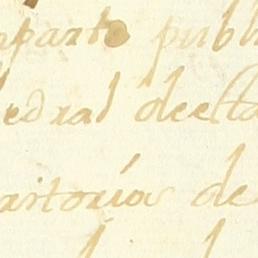 parto publi
edral deesta
aritorios de